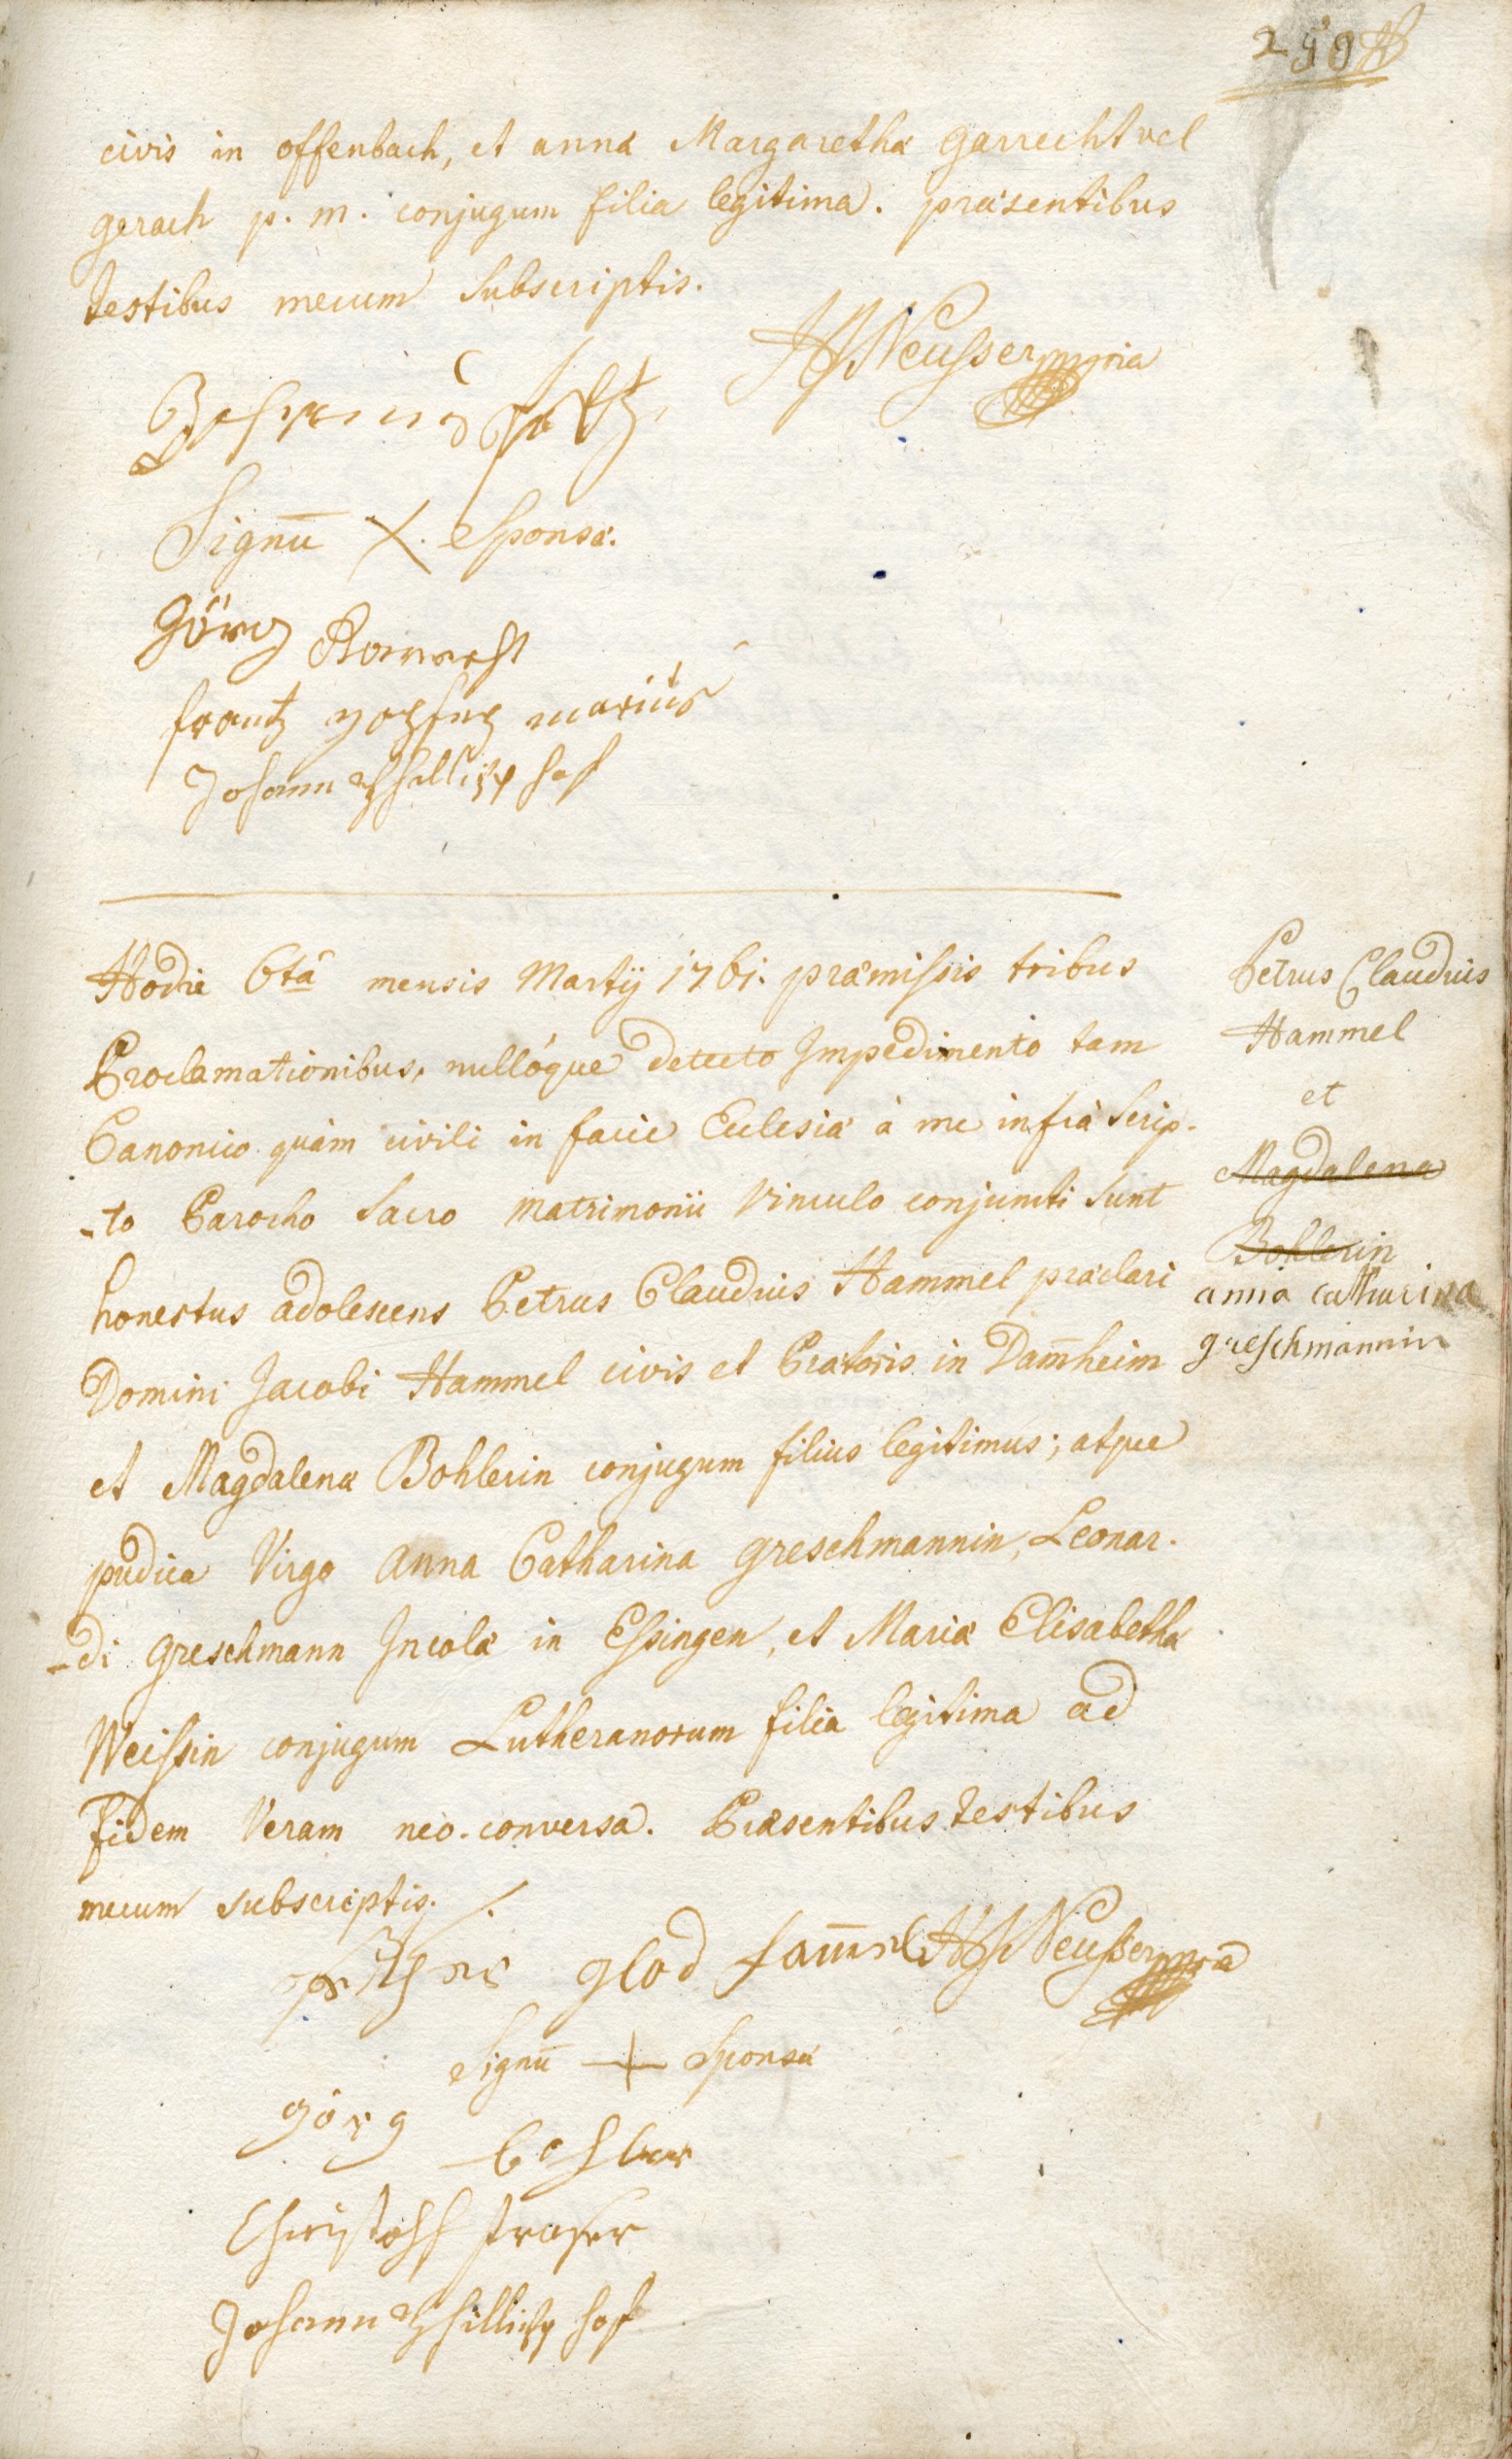 civis in offenbach, et annæ Margarethæ garrecht vel
gerach p. m. conjugum filia legitima. præsentibus
testibus mecum subscriptis.
HJNeusser mpria
Signū X Sponsæ.
Görg
frantz marius
Johann Phillipp hof
Hodie 6tâ mensis Martij 1761. præmissis tribus
Proclamationibus, nullóque detecto Impedimento tam
Canonico quàm civili in facie Ecclesiæ à me infrà scrip-
-to Parocho Sacro Matrimonii Vinculo conjuncti sunt
honestus adolescens Petrus Claudius Hammel præclari
Domini Jacobi Hammel civis et Prætoris in Dam̄heim
et Magdalenæ Bohlerin conjugum filius legitimus; atque
pudica Virgo Anna Catharina greschmannin, Leonar-
-di greschmann Incolæ in Essingen, et Mariæ Elisabethæ
Weissin conjugum Lutheranorum filia legitima ad
fidem Veram neo-conversa. Præsentibus testibus
mecum subscriptis.
glod ham̄el HJNeusser mpria
Signū + Sponsæ
görg bohler
Christoff
Johann Phillipp hof
Petrus Claudius
Hammel
et
Magdalena
Bohlerin
anna catharina
greschmannin